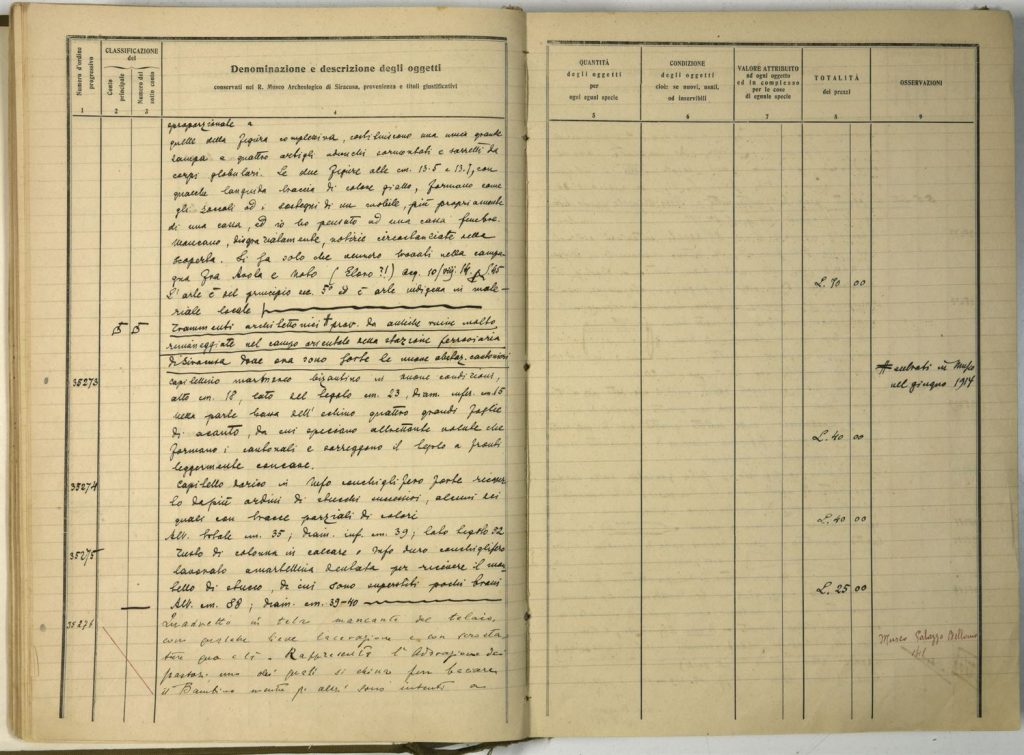 Numero d'ordine progressivo
CLASSIFICAZIONE
del
Conto principale
Numero del sotto conto
Denominazione e descrizione degli oggetti
conservati nel R. Museo Archeologico di Siracusa, provenienza e titoli giustificativi
1 2 3 4
a
quelle della figura complessiva, costituiscono una unica grande
zampa a quattro artigli adunchi sormontati e sorretti da
corpi globulari. Le due figure alte cm. 13.5 e 13.7, con
qualche languida traccia di colore giallo, formano come
gli zoccoli od i sostegni di un mobile, più propriamente
di una cassa, ed io ho pensato ad una cassa funebre.
Mancano, disgraziatamente, notizie circostanziate sulla
scoperta. Si sa solo che vennero trovati nella campa
gna fra Avola e Noto (Eloro ?!) acq. 10/VIII/14
L'arte è del principio sec. 5º ed è arte indigena in mate-
riale locale
5 5 Frammenti architettonici prov. da antiche ruine molto
rimaneggiate nel campo orientale della stazione ferroviaria
di Siracusa dove ora sono sorte le nuove abitaz.
35273 Capitellino marmoreo bizantino in buone condizioni,
alto cm. 18, lato del tegolo cm. 23, diam. infer. cm. 15
nella parte bassa dell'echino quattro grandi foglie
di acanto, da cui spuntano altrettante volute che
formano i cantonali e sorreggono il tegolo a fronti
leggermente concave.
35274 Capitello dorico in tufo conchiglifero forte ricoper
to da più ordini di stucchi successivi, alcuni dei
quali con tracce parziali di colori
Alt. totale cm. 35; diam. inf. cm. 39; lato tegolo 52
35275 Rudo di colonna in calcare o tufo duro conchiglifero
lavorato a martellina dentata per ricevere il man
tello di stucco, di cui sono superstiti pochi brani
Alt. cm. 58; diam. cm. 39-40
35276 Quadretto in tela mancante del telaio,
con qualche lieve lacerazione e con scrosta
ture qua e là. Rappresenta l'Adorazione dei
pastori, uno dei quali si china per baciare
il Bambino mentre gli altri sono intenti a
QUANTITÀ
degli oggetti
per
ogni egual specie
CONDIZIONE
degli oggetti
cioè: se nuovi, usati,
od inservibili
VALORE ATTRIBUITO
ad ogni oggetto
ed in complesso
per le cose
di eguale specie
TOTALITÀ
dei prezzi
OSSERVAZIONI
5 6 7 8 9
L. 70 00
# entrati in Museo
nel giugno 1914
L. 40 00
L. 40 00
L. 25 00
Museo Palazzo Bellomo